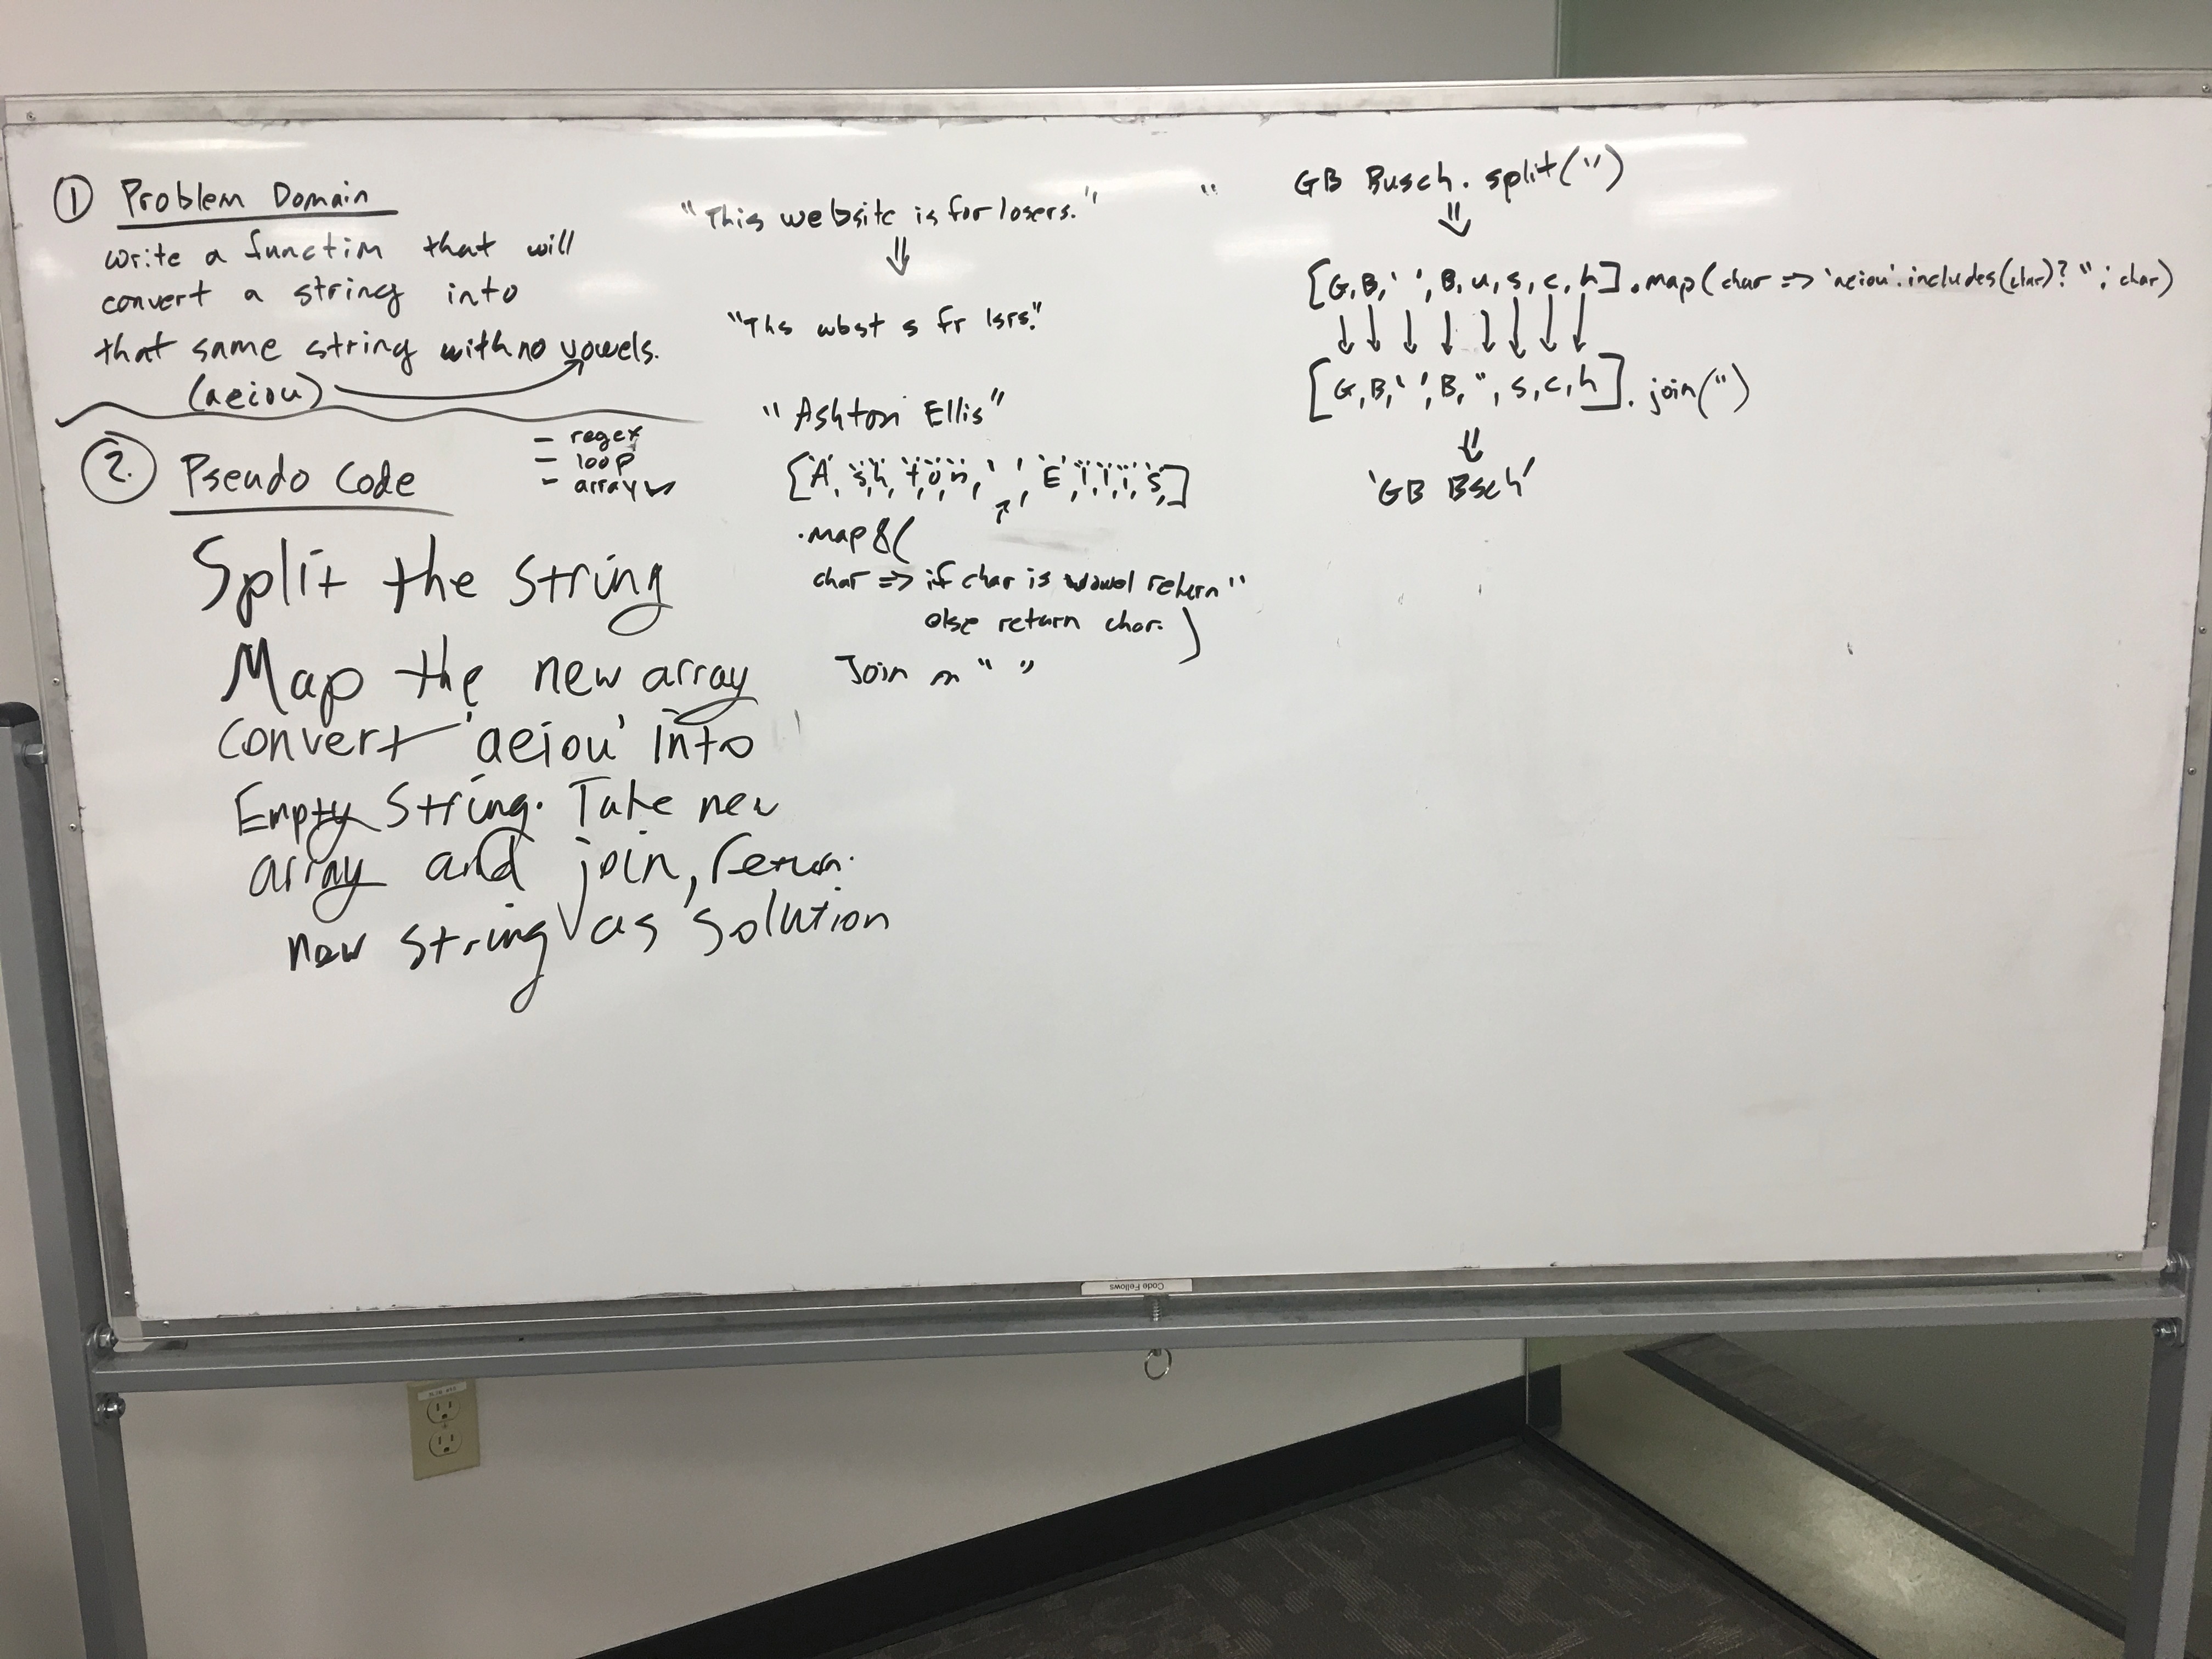 ① Problem Domain
write a function that will
convert a string into
that same string with no vowels.
(aeiou)
2. Pseudo Code
- regex
- loop
- array ✓
Split the string
Map the new array
convert 'aeiou' into
Empty String. Take new
array and join, return
new string as solution
"This website is for losers."
⇓
"Ths wbst s fr lsrs."
"Ashton Ellis"
['A','s','h','t','o','n',' ','E','l','l','i','s']
.map(
char => if char is vowel return ''
else return char. )
Join on " "
"
GB Busch. split('')
⇓
[G,B,' ',B,u,s,c,h].map(char => 'aeiou'.includes(char)? '' ; char)
↓ ↓ ↓ ↓ ↓ ↓ ↓ ↓
[G,B,' ',B,'',s,c,h]. join('')
⇓
'GB Bsch'
Code Fellows